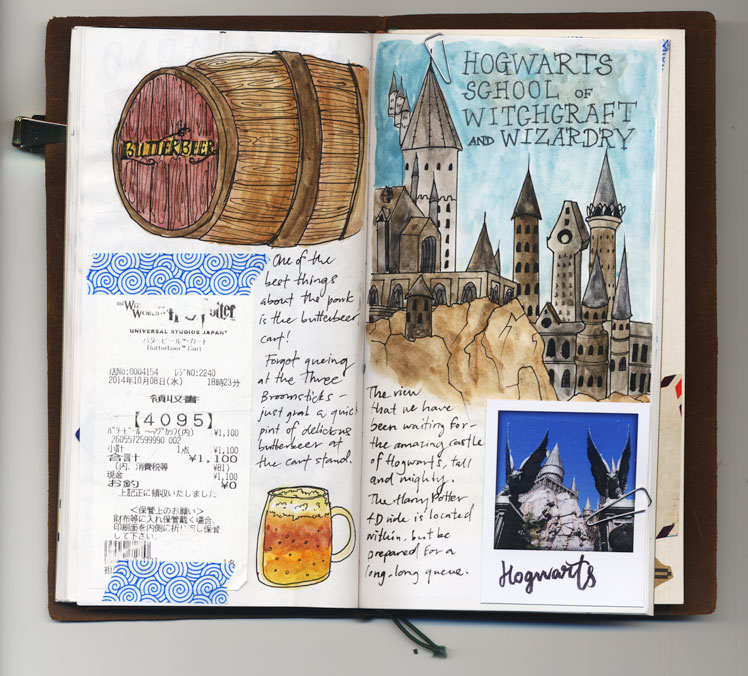 BUTTERBEER
One of the
best things
about the park
is the butterbeer
cart!
Forget queing
at the Three
Broomsticks –
just grab a quick
pint of delicious
butterbeer at
the cart stand.
UNIVERSAL STUDIOS JAPAN
バタービール・カート
Butterbeer Cart
店No:0004154 レジNO:2240
2014年10月08日(水) 18時23分
領収書
【4095】
バタービール ～マグカップ(内) ¥1,100
2605572599990 002
小計 1点 ¥1,100
合計 ¥1,100
(内、消費税等 ¥81)
現金 ¥1,100
お釣 ¥0
上記正に領収いたしました
<保管上のお願い>
財布等に入れ保管戴く場合、
印刷面を内側に折 保管
して下さい
HOGWARTS
SCHOOL OF
WITCHGRAFT
AND WIZARDRY
The view
that we have
been waiting for –
the amazing castle
of Hogwarts, tall
and mighty.
The Harry Potter
4D ride is located
within, but be
prepared for a
long-long queue.
Hogwarts